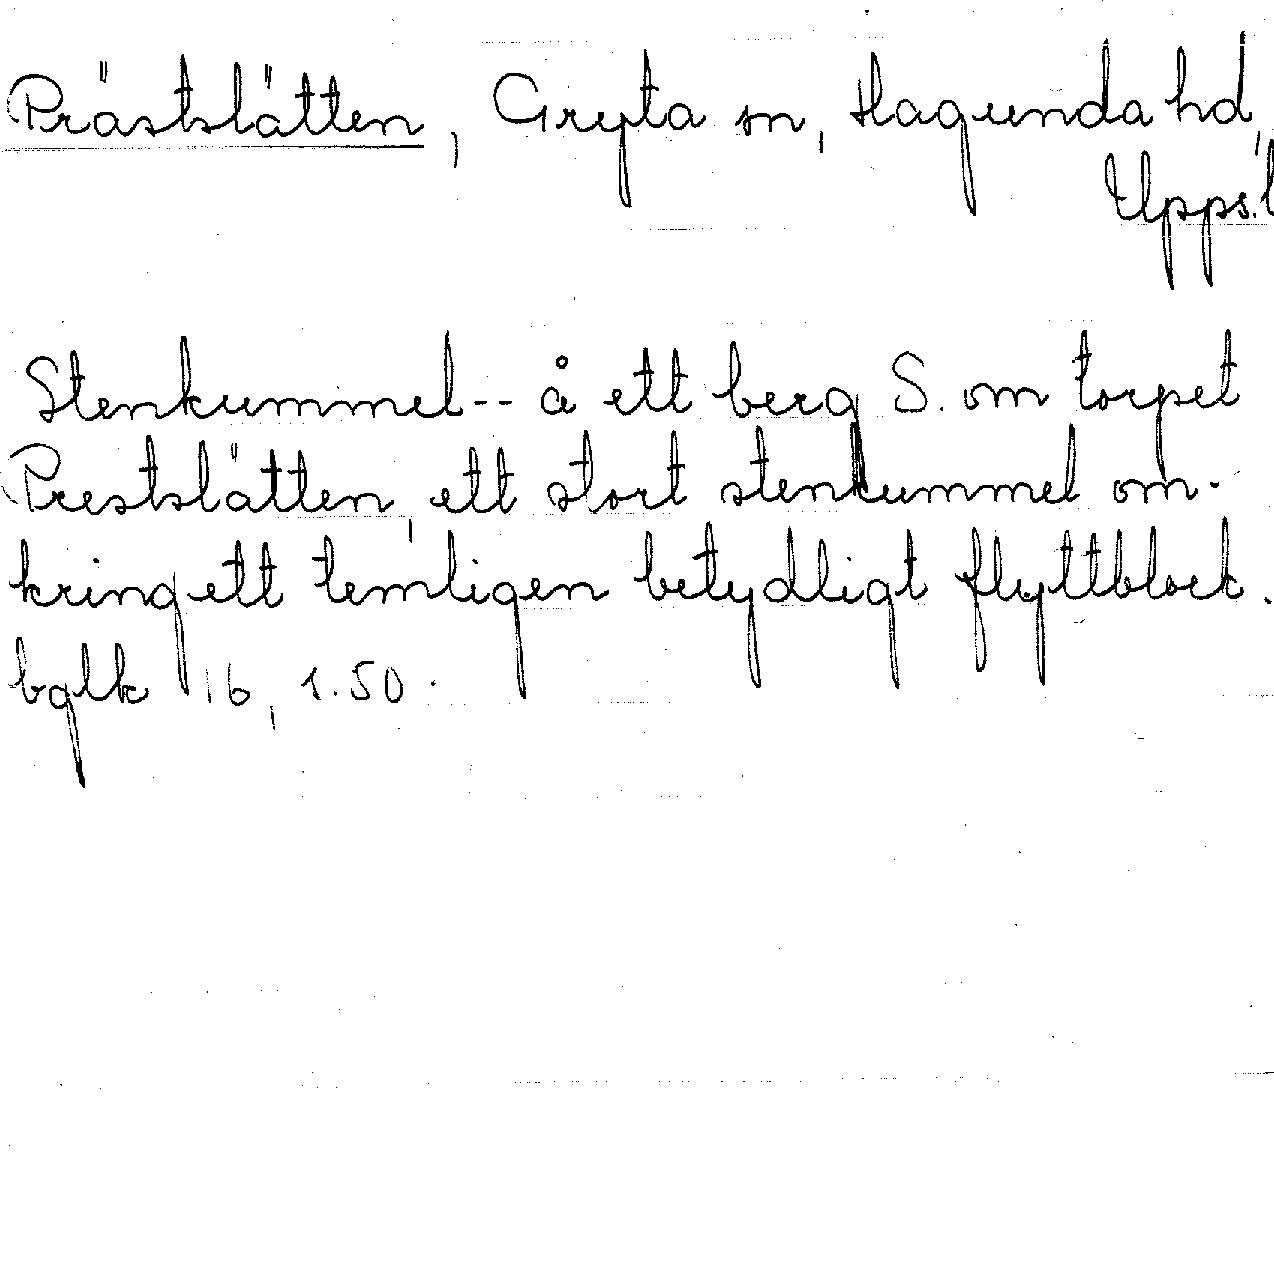 Prästslätten, Gryta sn, Hagunda hd,
Upps. l
Stenkummel -- å ett berg S. om torpet
Prestslätten, ett stort stenkummel om-
kring ett temligen betydligt flyttblock.
bglk 16, 1.50.